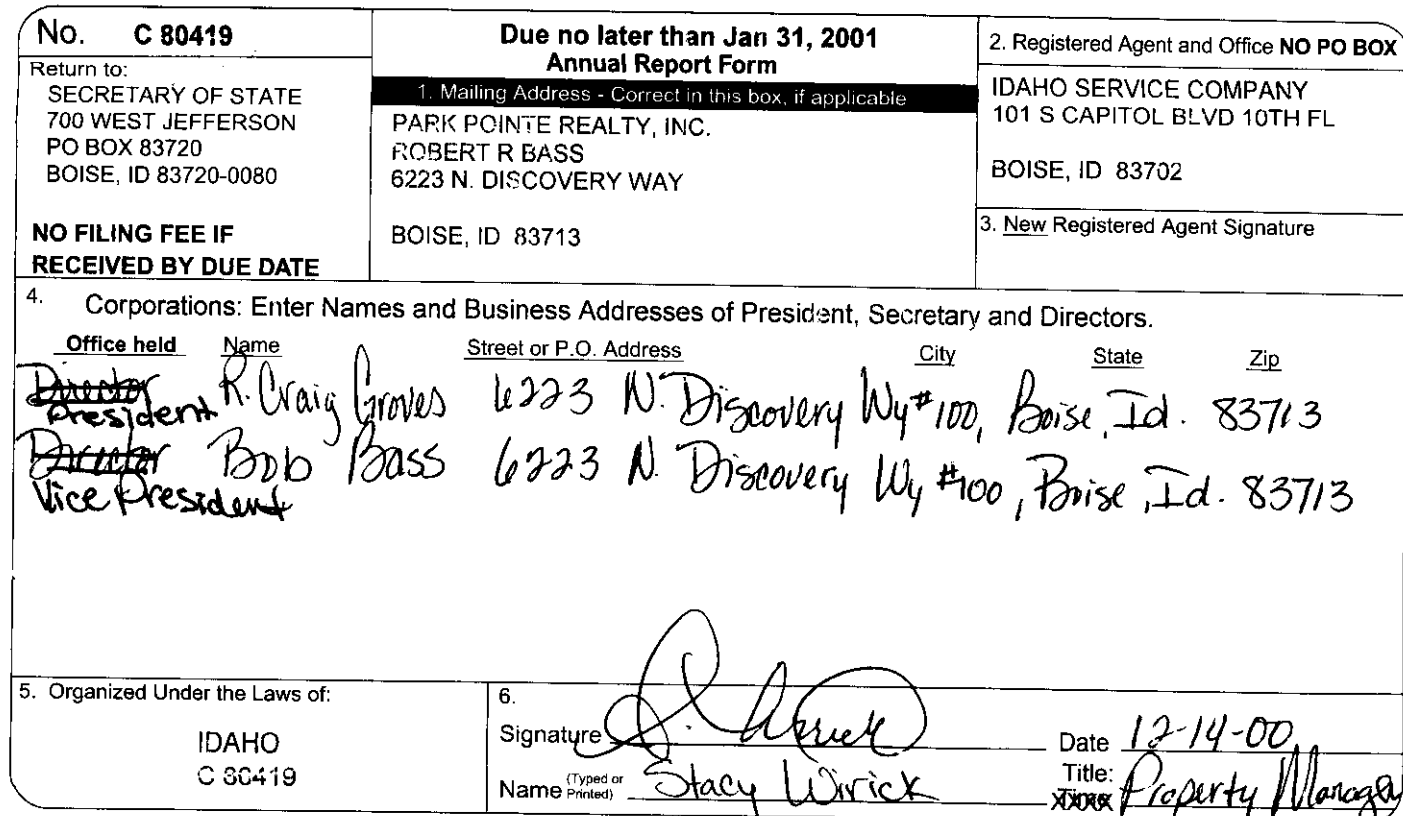 No. C 80419
Return to:
SECRETARY OF STATE
700 WEST JEFFERSON
PO BOX 83720
BOISE, ID 83720-0080
NO FILING FEE IF
RECEIVED BY DUE DATE
Due no later than Jan 31, 2001
Annual Report Form
1. Mailing Address - Correct in this box, if applicable
PARK POINTE REALTY, INC.
ROBERT R BASS
6223 N. DISCOVERY WAY
BOISE, ID 83713
2. Registered Agent and Office NO PO BOX
IDAHO SERVICE COMPANY
101 S CAPITOL BLVD 10TH FL
BOISE, ID 83702
3. New Registered Agent Signature
4. Corporations: Enter Names and Business Addresses of President, Secretary and Directors.
Office held Name Street or P.O. Address City State Zip
Director R. Craig Groves 6223 N. Discovery Wy #100, Boise, Id. 83713
President
Director Bob Bass 6223 N. Discovery Wy #100, Boise, Id. 83713
Vice President
5. Organized Under the Laws of:
IDAHO
C 80419
6.
Signature S. Wirick Date 12-14-00
Name (Typed or Printed) Stacy Wirick Title: Property Manager